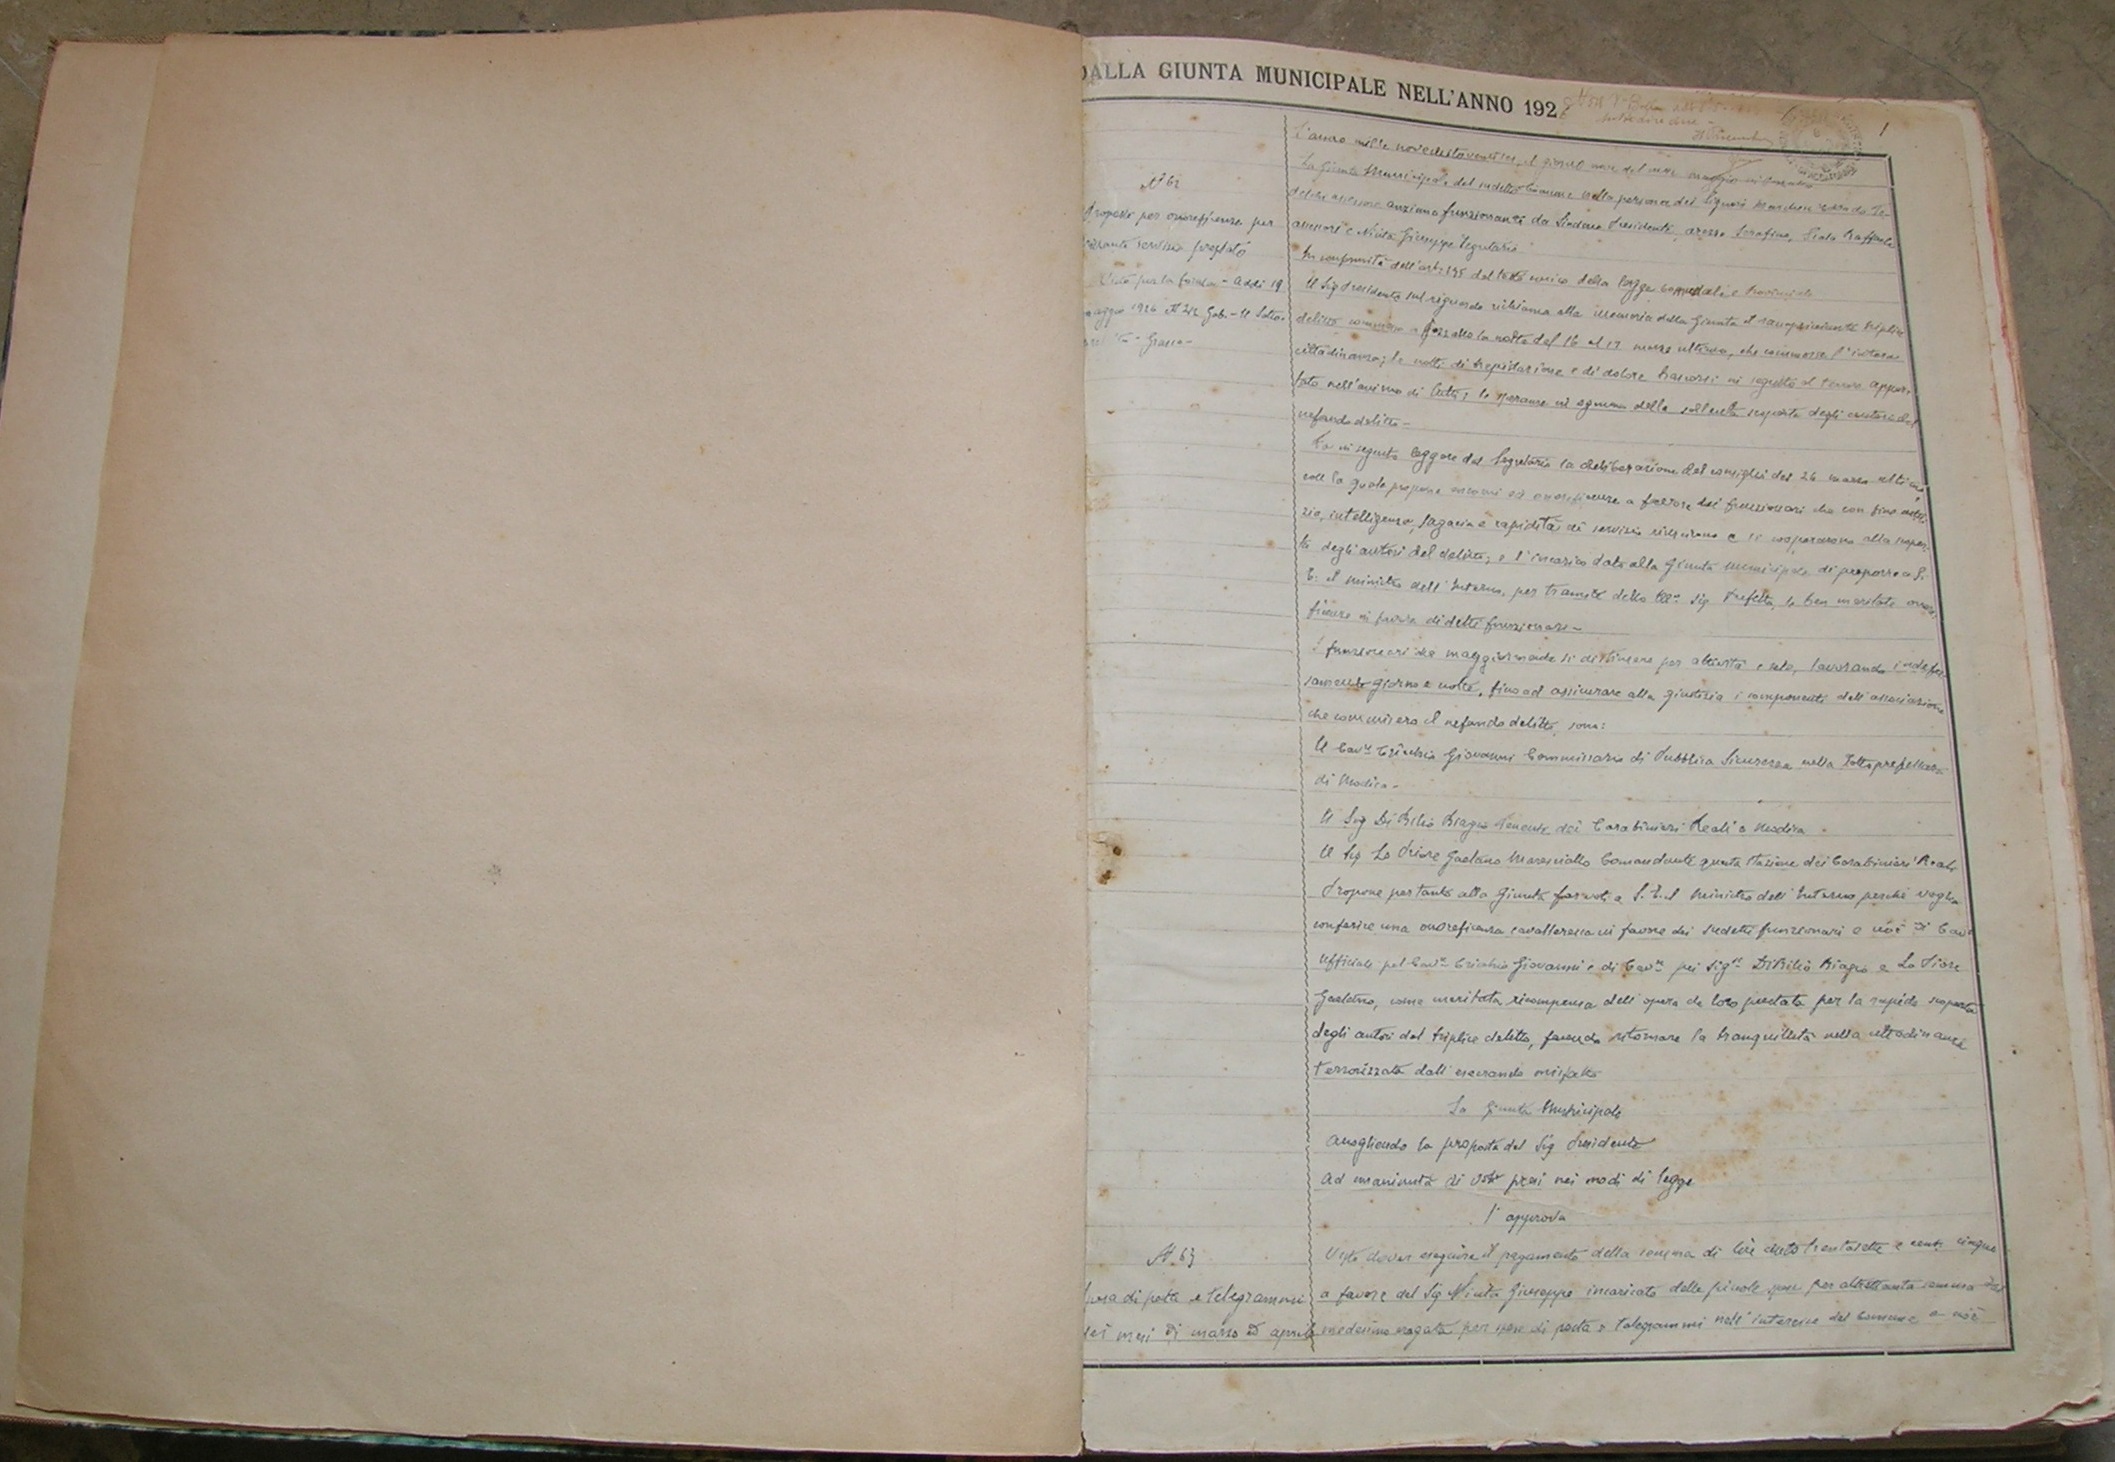 DALLA GIUNTA MUNICIPALE NELL'ANNO 192
1
N° 62
Proposte per onorificenze per
servizio prestato
Visto per la - Addì 19
maggio 1926 N 212 Gab. - Il Sotto
Grasso -
L'anno mille novecentoventisei, il giorno del mese maggio in
La Giunta Municipale del suddetto Comune nella persona dei Signori
assessore anziano funzionante da Sindaco Presidente, Serafino, Raffaele
assessori e Giuseppe Segretario
In conformità dell'art. del testo unico della legge Comunale e Provinciale
Il Sig Presidente sul riguardo richiama alla memoria della Giunta il raccapricciante triplice
delitto commesso a Pozzallo la notte del 16 al 17 marzo ultimo, che commosse l'intera
cittadinanza; le notti di trepidazione e di dolore trascorsi in seguito al terrore appor-
tato nell'animo di tutti; le speranze in ognuno della sollecita scoperta degli autori del
nefando delitto -
Fa in seguito leggere dal Segretario la deliberazione del consiglio del 26 marzo ultimo
con la quale propone encomi ed onorificenze a favore dei funzionari che con fine
intelligenza, sagacia e rapidità di servizio riuscirono e si cooperarono alla scoper-
ta degli autori del delitto; e l'incarico dato alla Giunta Municipale di proporre a S.
E. il Ministro dell'Interno, per tramite dello Ill.mo Sig Prefetto, le ben meritate onori-
ficenze in favore di detti funzionari -
I funzionari che maggiormente si distinsero per attività e zelo, lavorando indefes-
samente giorno e notte, fino ad assicurare alla giustizia i componenti dell'associazione
che commisero il nefando delitto, sono:
Il Cav.re Giovanni Commissario di Pubblica Sicurezza nella Sottoprefettura
di Modica -
Il Sig Di Bilio Biagio Tenente dei Carabinieri Reali a Modica
Il Sig Lo Priore Gaetano Maresciallo Comandante questa stazione dei Carabinieri Reali
Propone pertanto alla Giunta far voti a S. E. il Ministro dell'Interno perchè voglia
conferire una onorificenza cavalleresca in favore dei sudetti funzionari e cioè di Cav.
Ufficiale pel Cav.re Giovanni e di Cav.re pei Sig.ri Di Bilio Biagio e Lo Priore
Gaetano, come meritata ricompensa dell'opera da loro prestata per la rapida scoperta
degli autori del triplice delitto, facendo ritornare la tranquillità nella cittadinanza
terrorizzata dall'esecrando misfatto
La Giunta Municipale
accogliendo la proposta del Sig Presidente
ad unanimità di voti presi nei modi di legge
l'approva
N. 63
Spesa di posta e telegrammi
dei mesi di marzo ed aprile
Visto dover eseguire il pagamento della somma di lire centotrentasette e cent. cinque
a favore del Sig Giuseppe incaricato delle piccole spese per altrettanta somma dal
medesimo pagata per spese di posta e telegrammi nell'interesse del Comune e cioè